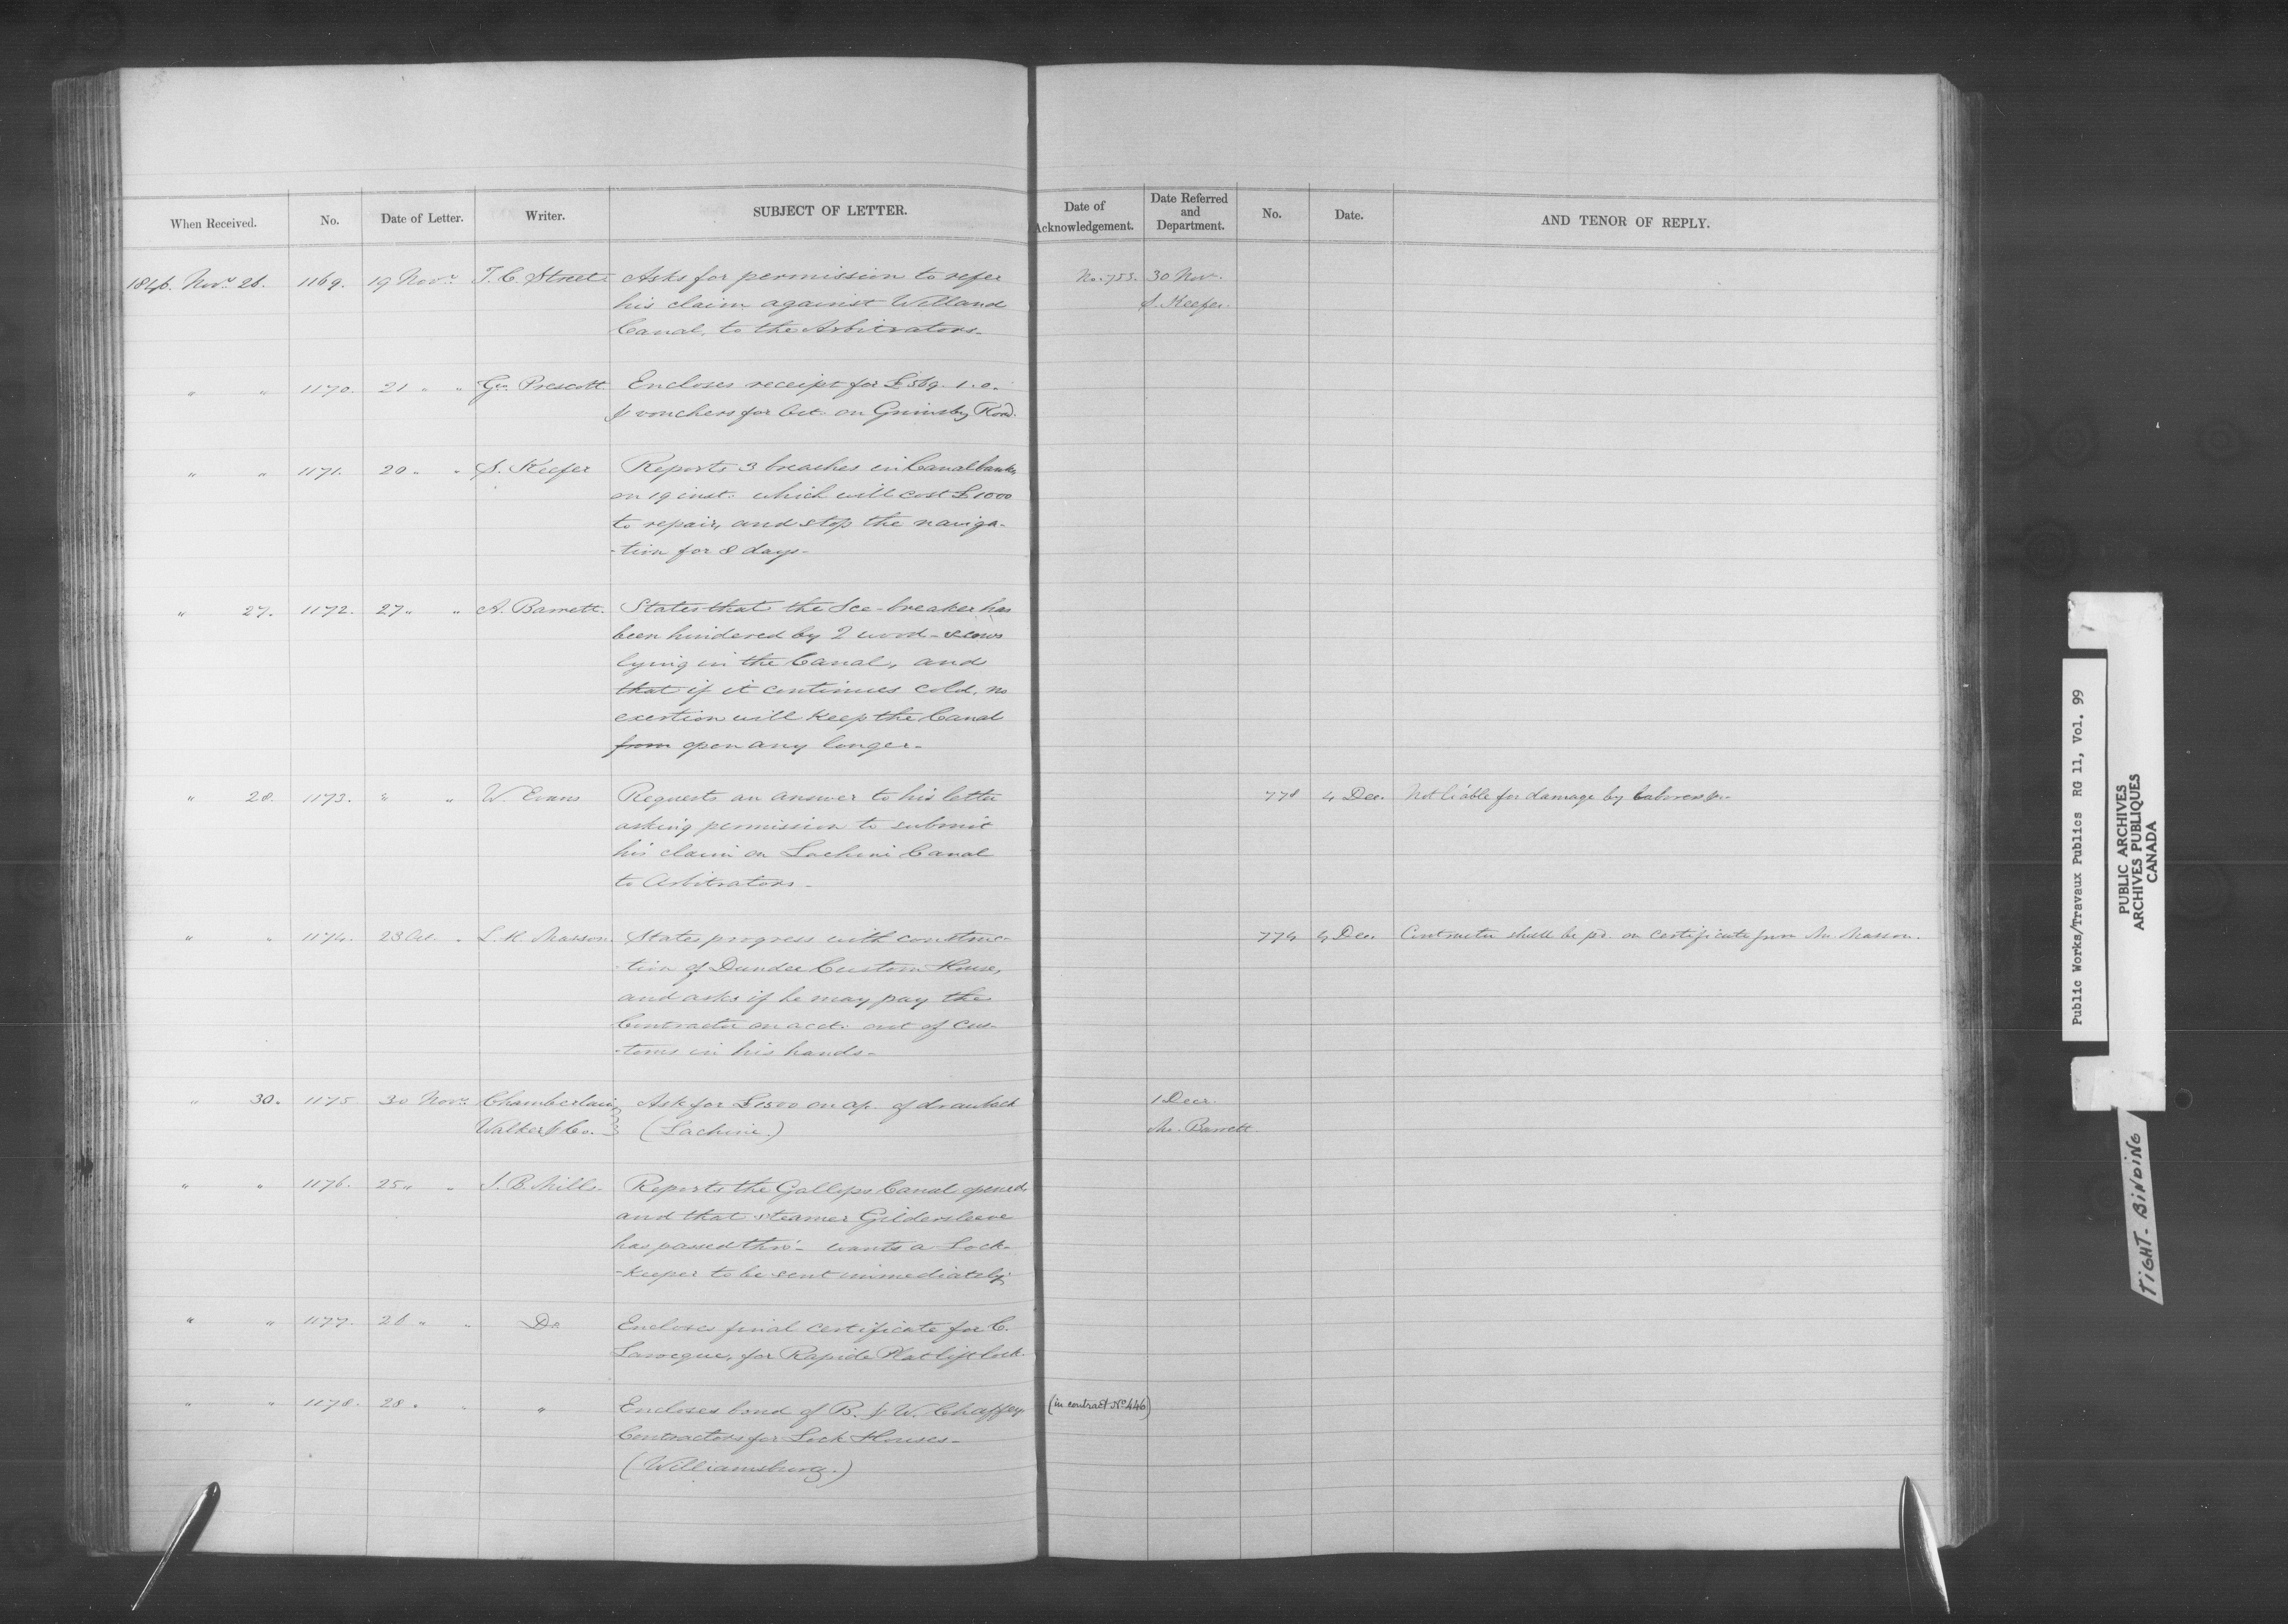 When Received. No. Date of Letter. Writer. SUBJECT OF LETTER. Date of Acknowledgement. Date Referred and Department. No. Date. AND TENOR OF REPLY.
1846. Novr. 26. 1169. 19 Novr. T. C. Street Asks for permission to refer No. 753. 30 Nov.
his claim against Welland S. Keefer.
Canal, to the Arbitrators-
" " 1170. 21 " " Geo. Prescott Encloses receipt for £569. 1. 0.
& vouchers for Oct. on Grimsby Road.
" " 1171. 20 " " S. Keefer Reports 3 breaches in Canal banks
on 19 inst. which will cost £1000
to repair, and stop the naviga-
-tion for 8 days-
" 27. 1172. 27 " " A. Barrett. States that the Ice-breaker has
been hindered by 2 wood-scows
lying in the Canal, and
that if it continues cold, no
exertion will keep the Canal
from open any longer-
" 28. 1173. " " W. Evans Requests an answer to his letter 778 4 Dec. Not liable for damage by laborers &c-
asking permission to submit
his claim on Lachine Canal
to Arbitrators-
" " 1174. 23 Oct. " L. H. Masson. States progress with construc- 774 4 Dec. Contractor shall be pd. on certificate from Mr. Masson.
-tion of Dundee Custom House,
and asks if he may pay the
Contractor on acct. out of Cus-
-toms in his hands-
" 30. 1175 30 Novr. Chamberlain, Ask for £1500 on a/c. of drawback 1 Decr.
Walker & Co. } (Lachine.) Mr. Barrett.
" " 1176. 25 " " J. B. Mills- Reports the Gallops Canal opened,
and that steamer Gildersleeve
has passed thro'- wants a Lock-
-keeper to be sent immediately
" " 1177. 26 " " Do Encloses final certificate for C.
Larocque, for Rapide Plat lift lock.
" " 1178. 28 " " " Encloses bond of B. & W. Chaffey (in contract No. 446)
Contractors for Lock Houses-
(Williamsburg.)
Public Works/Travaux Publics RG 11, Vol. 99
PUBLIC ARCHIVES
ARCHIVES PUBLIQUES
CANADA
TIGHT-BINDING